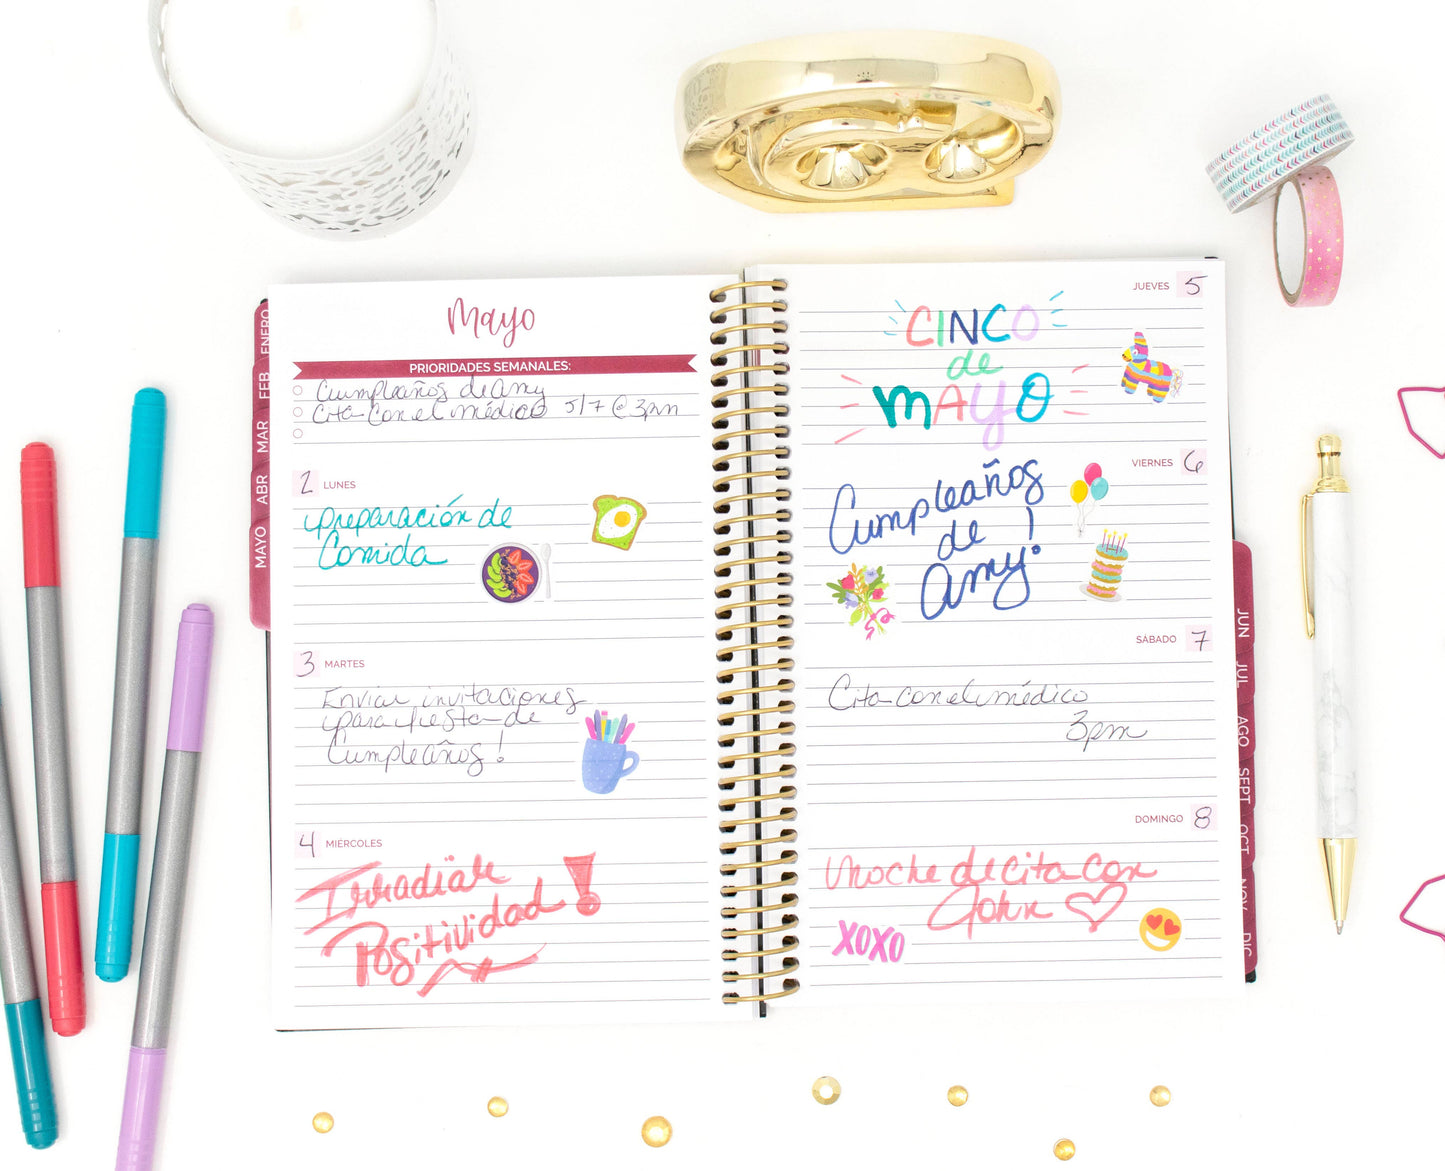 ENERO
FEB
MAR
ABR
MAYO
Mayo
PRIORIDADES SEMANALES:
Cumpleaños de Amy
Cita con el médico 5/7 @ 3pm
2 LUNES
preparación de
Comida
3 MARTES
Enviar invitaciones
para fiesta de
Cumpleaños!
4 MIÉRCOLES
Irradiar
Positividad!
JUEVES 5
CINCO
de
MAYO
VIERNES 6
Cumpleaños
de
Amy!
SÁBADO 7
Cita con el médico
3pm
DOMINGO 8
Noche de cita con
John
XOXO
JUN
JUL
AGO
SEPT
OCT
NOV
DIC